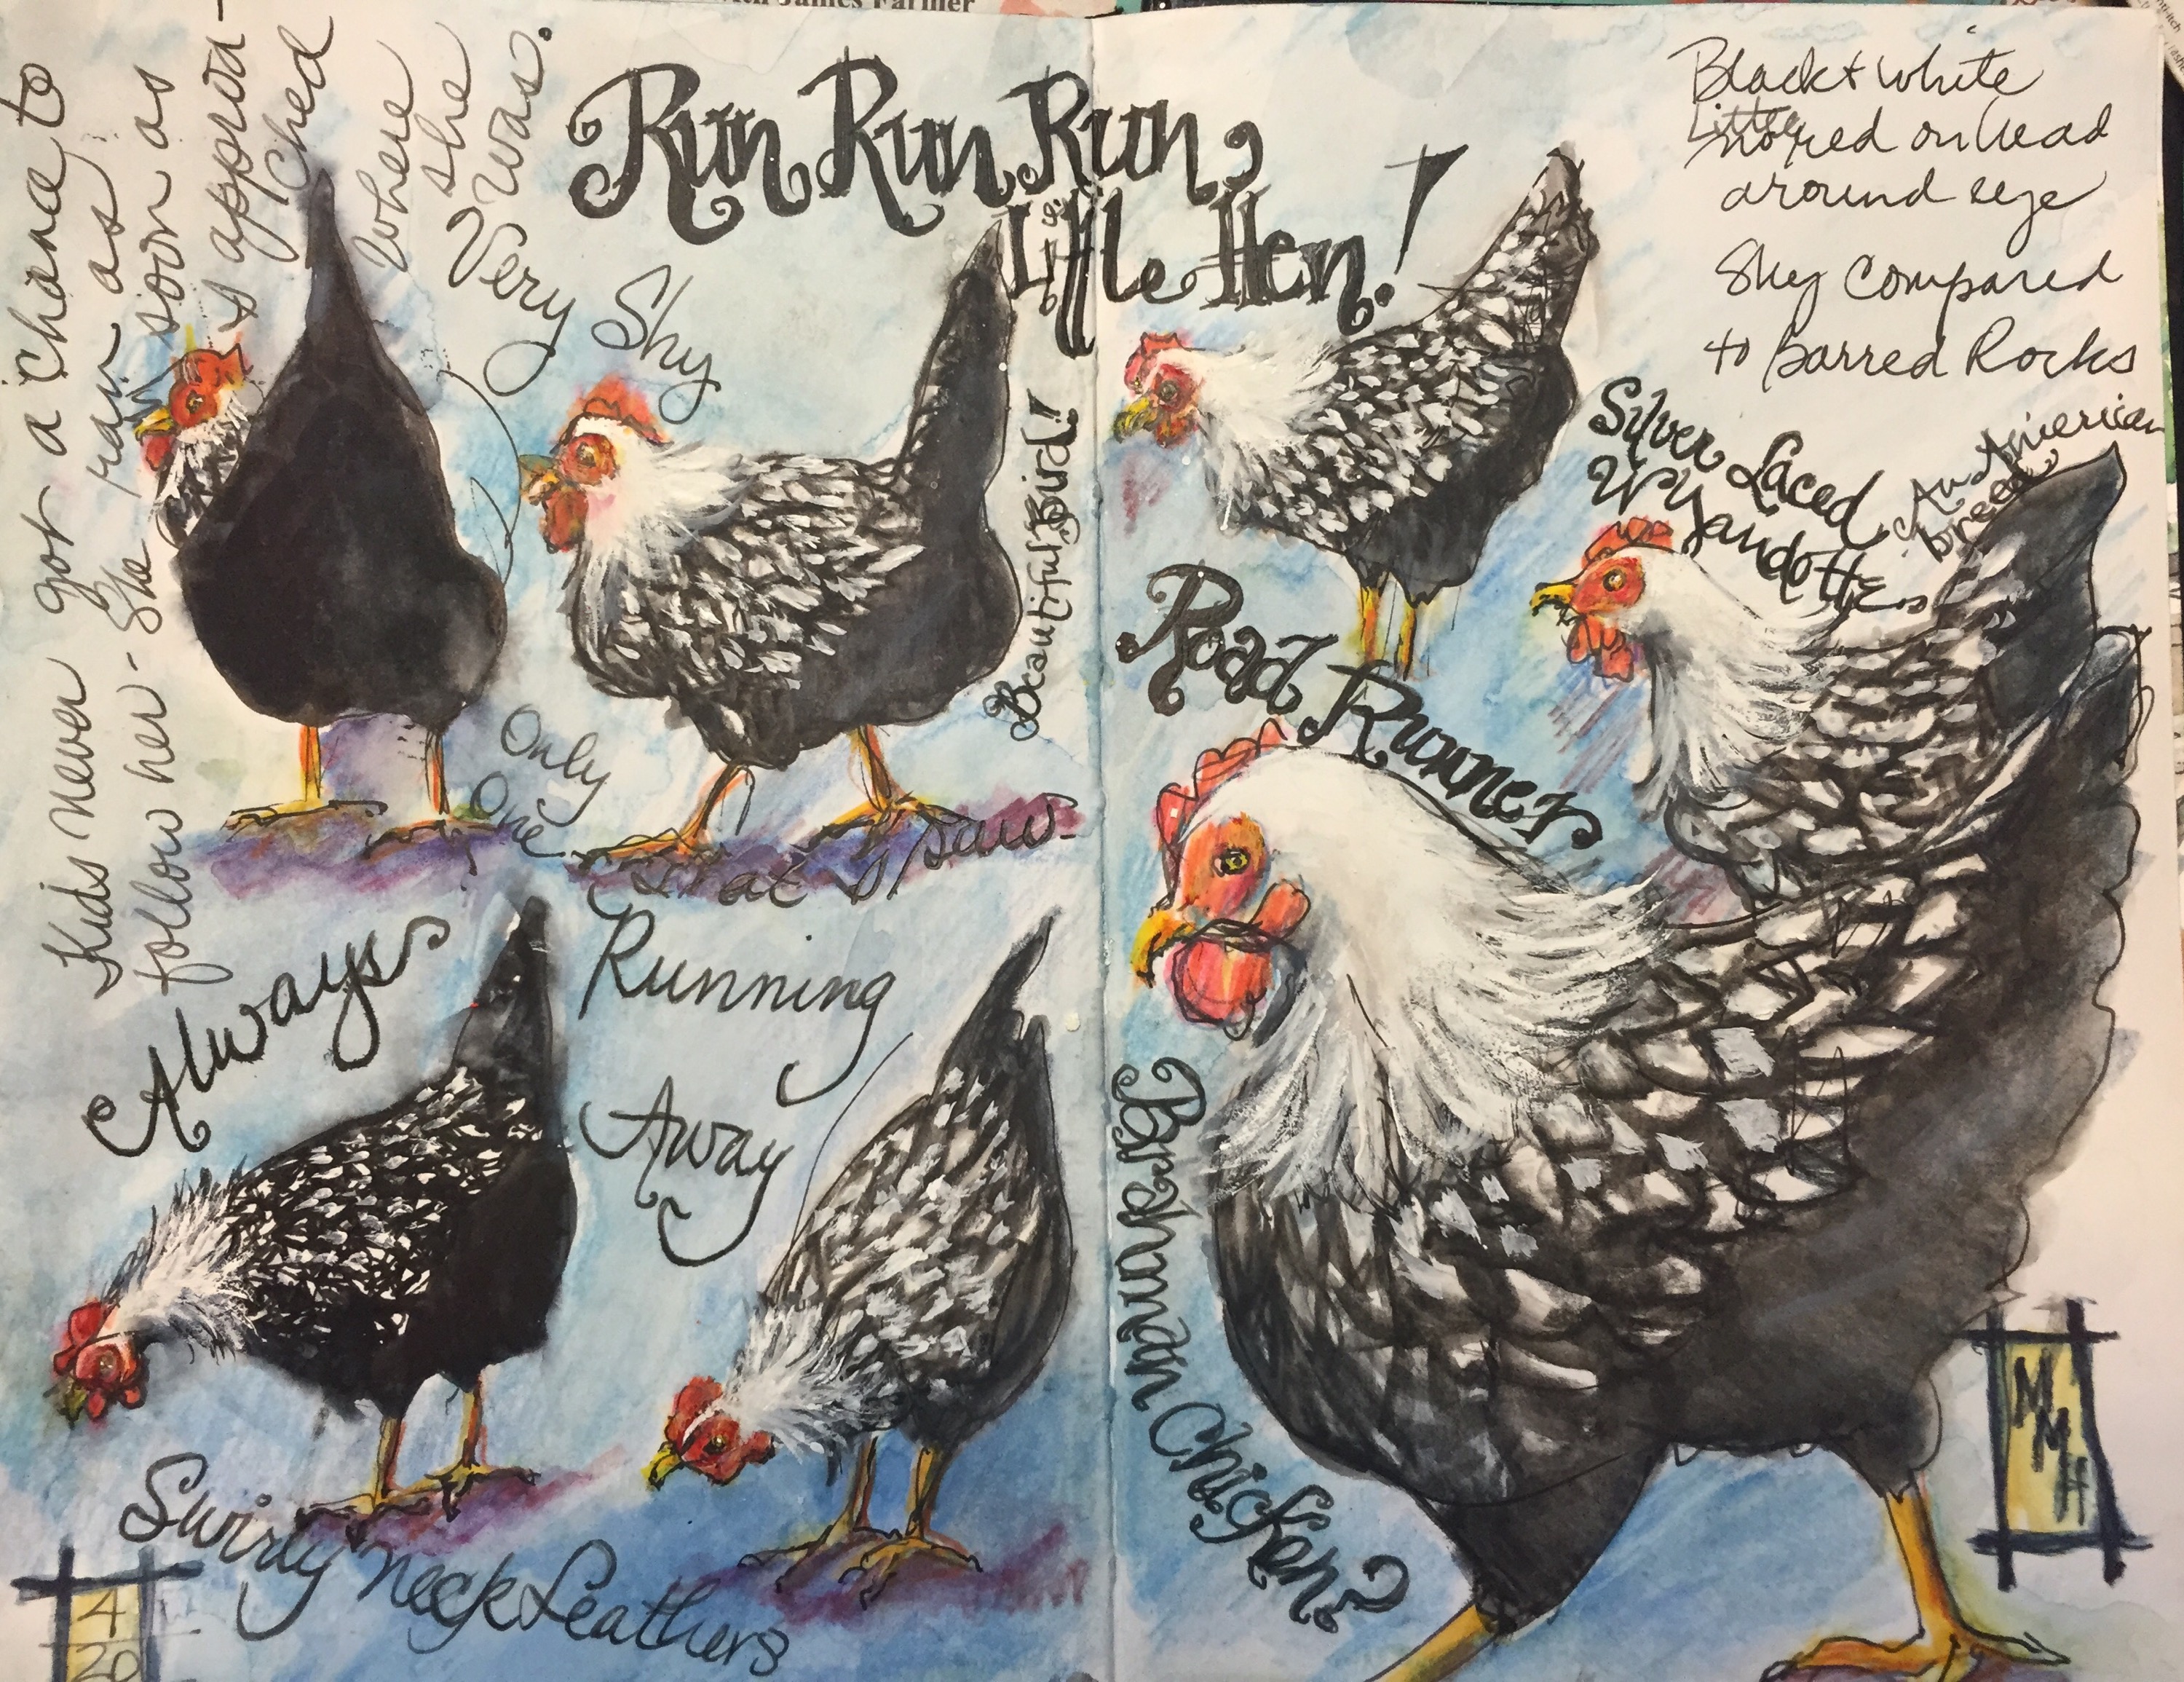 with James Farmer
Kids never got a chance to
follow her - She ran as
soon as
s approa-
ched
where
she
was.
Very Shy
Run Run Run,
Little Hen!
Black + white
Little
no red on head
around eye
Shy Compared
to Barred Rocks
Silver Laced
Wyandotte
An American
breed
Beautiful Bird!
Road Runner
Only
One
I saw
Always
Running
Away
Brahman Chicken?
Swirly Neck Feathers
4
20
MMH